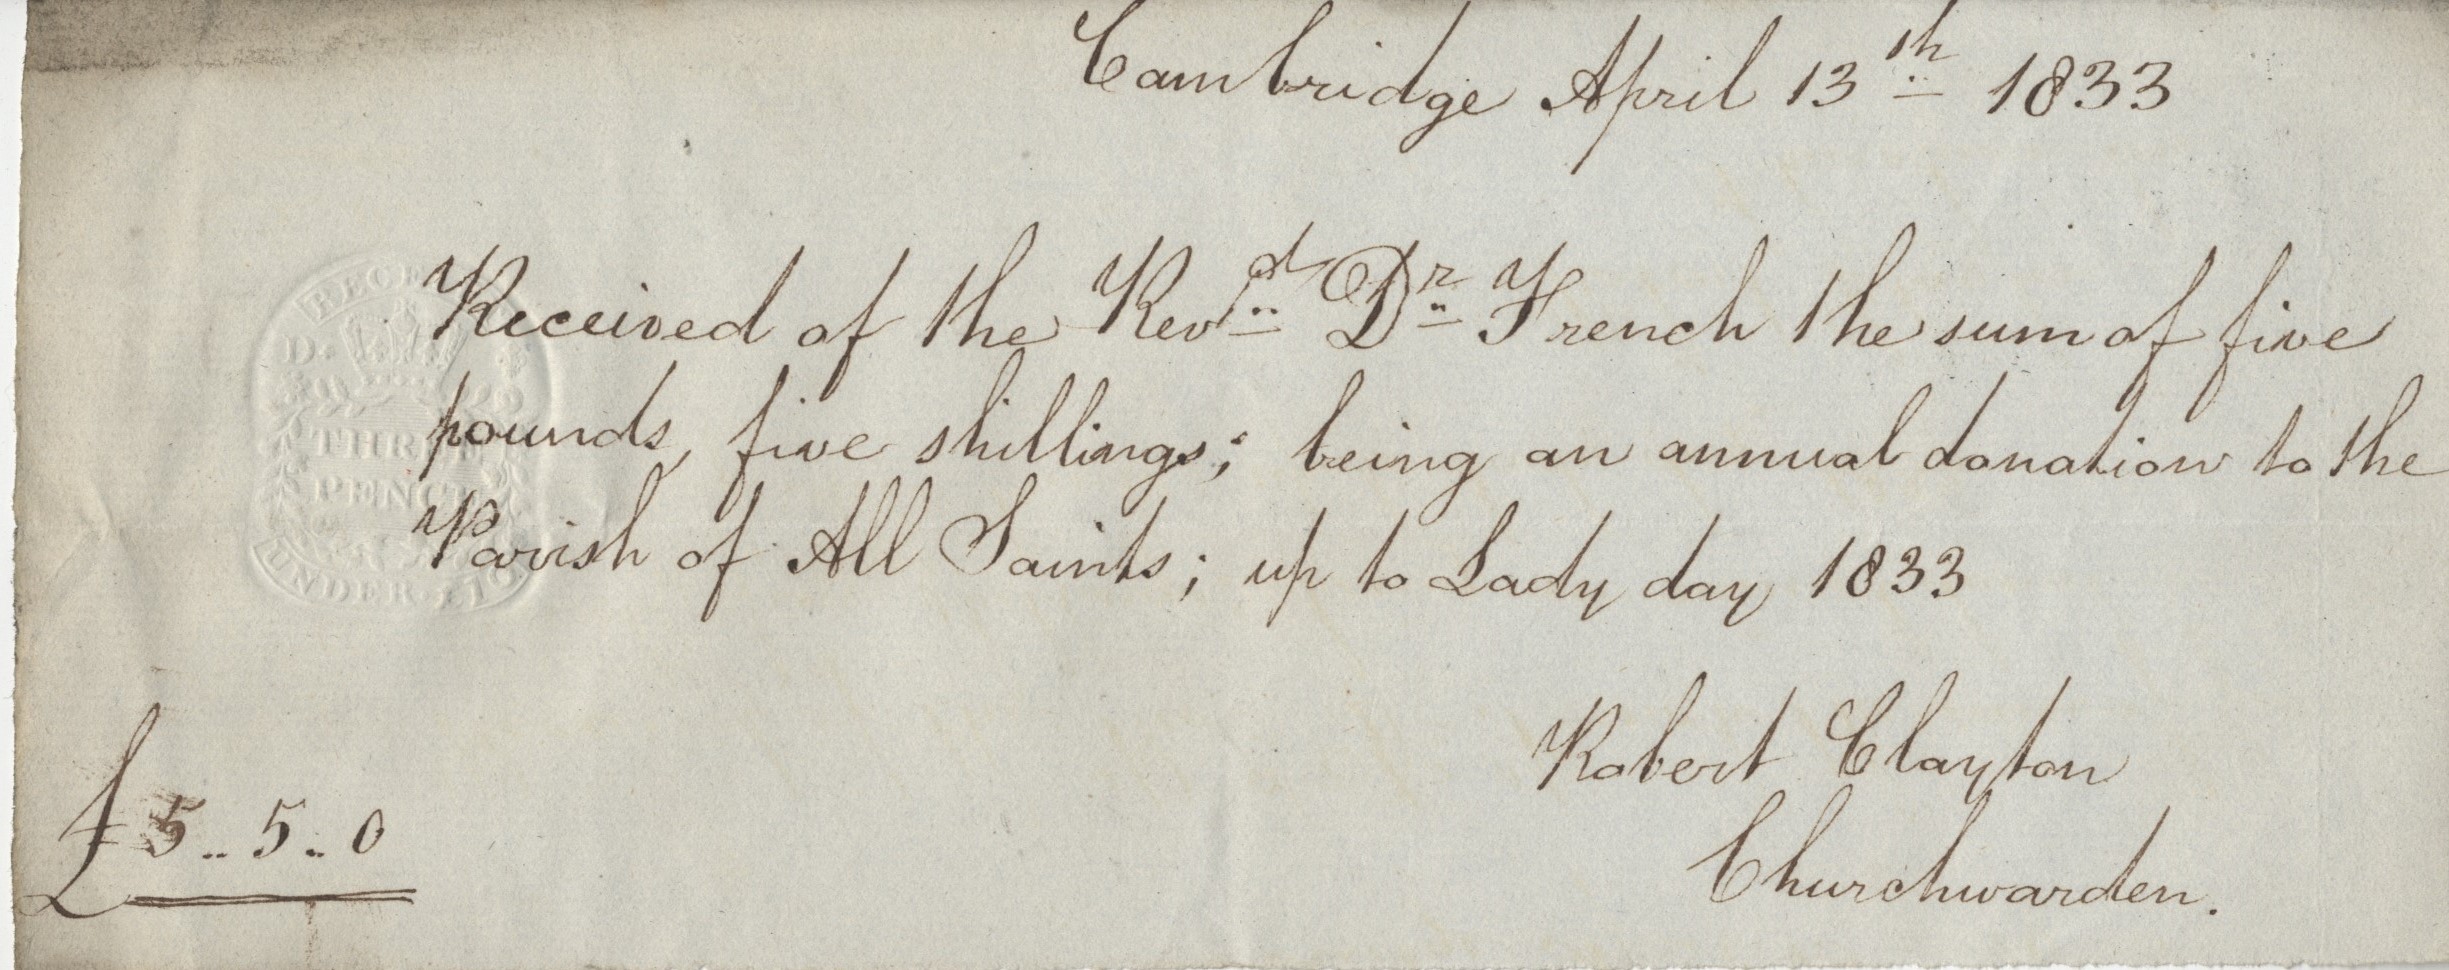 Cambridge April 13th 1833
Received of the Revd Dr French the sum of five
pounds, five shillings; being an annual donation to the
Parish of All Saints; up to Lady day 1833
Robert Clayton
Churchwarden.
£5..5..0
RECE
D.
THREE
PENCE
UNDER £10